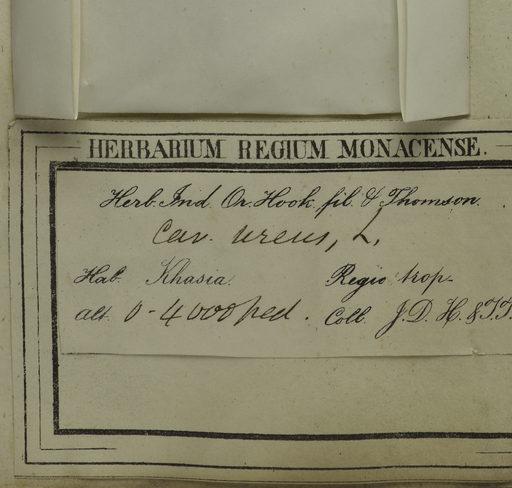 HERBARIUM REGIUM MONACENSE.
Herb. Ind. Or. Hook. fil. & Thomson.
Car. urens, L.
Hab. Khasia. Regio trop.
alt. 0-4000 ped. Coll. J. D. H. & T. T.